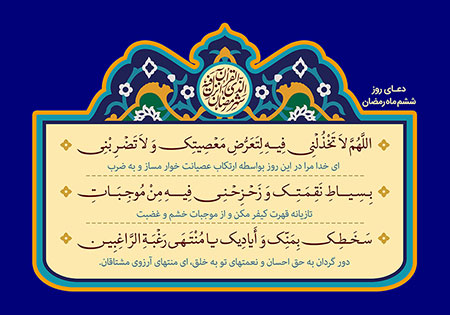 شهر رمضان الذی انزل فیه القرآن
دعـای روز
ششم ماه رمضان
اللَّهُمَّ لاَ تَخْذُلْنِي فِيهِ لِتَعَرُّضِ مَعْصِيَتِكَ وَ لاَ تَضْرِبْنِي
ای خدا مرا در این روز بواسطه ارتکاب عصیانت خوار مساز و به ضرب
بِسِيَاطِ نَقِمَتِكَ وَ زَحْزِحْنِي فِيهِ مِنْ مُوجِبَاتِ
تازیانه قهرت کیفر مکن و از موجبات خشم و غضبت
سَخَطِكَ بِمَنِّكَ وَ أَيَادِيكَ يَا مُنْتَهَى رَغْبَةِ الرَّاغِبِينَ
دور گردان به حق احسان و نعمتهای تو به خلق، ای منتهای آرزوی مشتاقان.